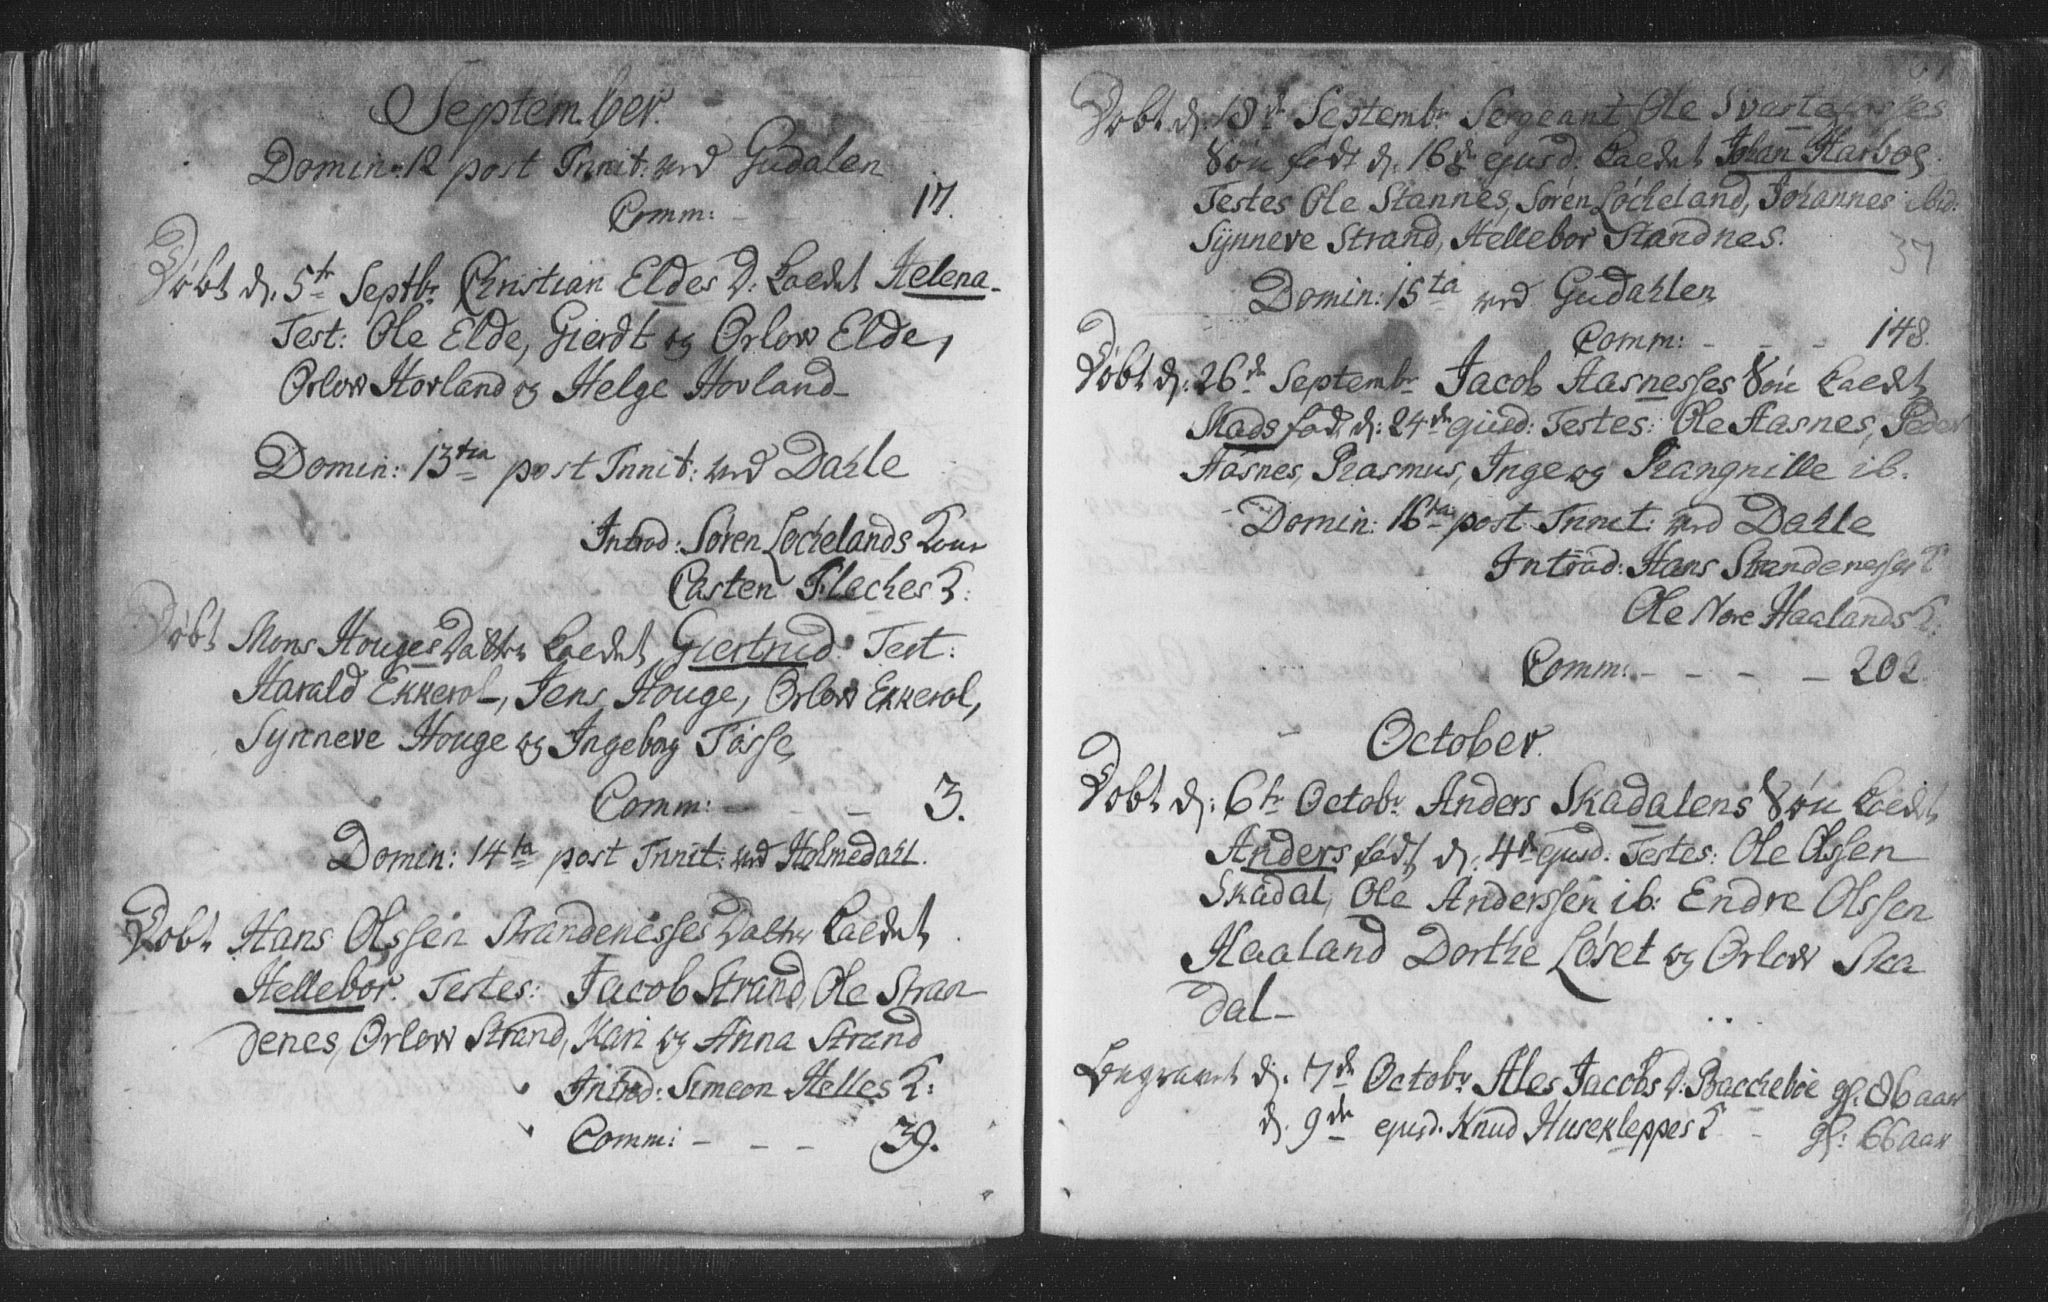 September.
Domin: 12 post Trinit: ved Gudalen
Comm: - - 17.
Døbt d. 5te Septbr Christian Eldes D: kaldet Helena-
Test: Ole Elde, Gierdt og Orlow Elde,
Orlow Hovland og Helge Hovland-
Domin: 13tia post Trinit: ved Dahle
Introd: Søren Løchelands Kone
Casten Fleches K:
Døbt Mons Houges Datter kaldet Giertrud: Test:
Harald Ekkerol, Jens Houge, Orlow Ekkerol,
Synneve Houge og Ingeborg Tosse
Comm: - - - 3.
Domin: 14ta post Trinit: ved Holmedahl.
Døbt Hans Olssen Strandenesses Datter kaldet
Hellebor. Testes: Jacob Strand, Ole Stran
denes, Orlow Strand, Kari og Anna Strand
Introd: Simeon Helles K:
Comm: - - - 39.
Døbt d. 18de Septembr Sergeant Ole
Søn født d. 16de ejusd: kaldet Johan Harboe
Testes Ole Stannes, Søren Løcheland, Johannes ibid:
Synneve Strand, Hellebor Standnes.
37
Domin: 15ta ved Gudahlen
Comm: - - - 148.
Døbt d: 26de Septembr Jacob Aasnesses Søn kaldet
Mads fød d: 24de ejusd: Testes: Ole Aasnes, Peder
Aasnes, Rasmus, Inge og Rangnille ib.
Domin: 16ta post Trinit: ved Dahle
Introd: Hans Strandenesses K
Ole Nore Haalands K:
Comm: - - - - 202
October.
Døbt d: 6te Octobr Anders Skadalens Søn kaldet
Anders født d: 4de ejusd: Testes: Ole Olssen
Skadal, Ole Anderssen ib: Endre Olssen
Haaland Dorthe Løset og Orlow Ska
dal-
Begravet d. 7de Octobr Ales Jacobs D: Baccheboe gl: 86 aar
d. 9de ejusd. Knud Husekleppes K - gl: 66 aar